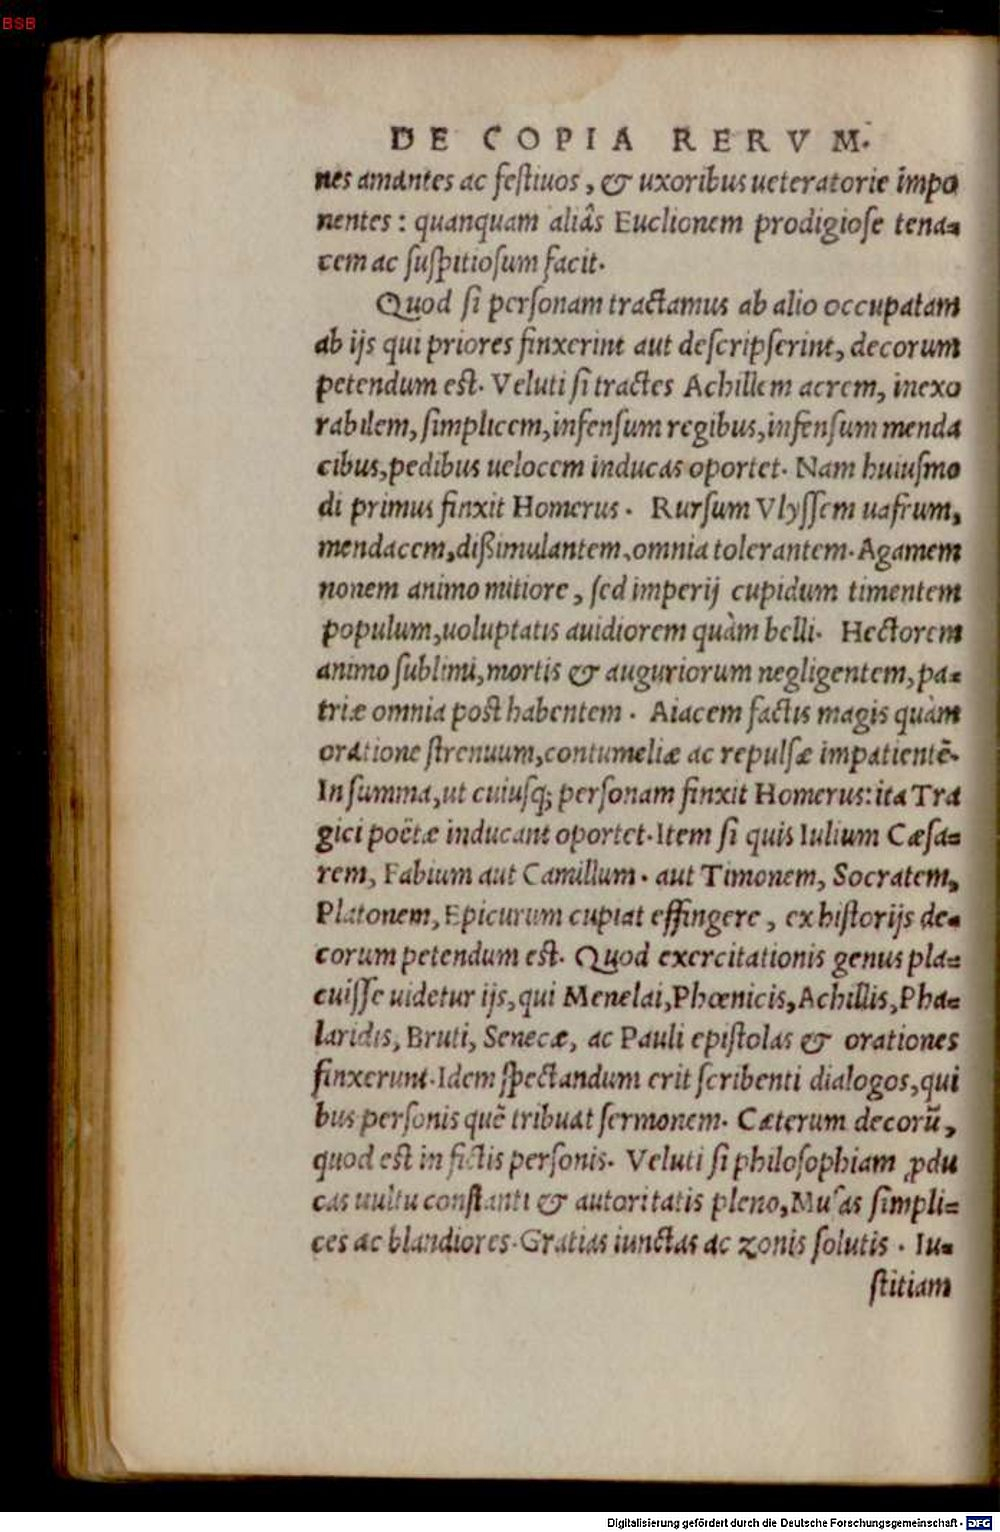 BSB
DE COPIA RERVM.
nes amantes ac festiuos, & uxoribus ueteratorie impo
nentes: quanquam aliâs Euclionem prodigiose tena-
cem ac suspitiosum facit.
Quod si personam tractamus ab alio occupatam
ab ijs qui priores finxerint aut descripserint, decorum
petendum est. Veluti si tractes Achillem acrem, inexo
rabilem, simplicem, infensum regibus, infensum menda
cibus, pedibus uelocem inducas oportet. Nam huiusmo
di primus finxit Homerus. Rursum Vlyssem uafrum,
mendacem, dißimulantem, omnia tolerantem. Agamem
nonem animo mitiore, sed imperij cupidum timentem
populum, uoluptatis auidiorem quàm belli. Hectorem
animo sublimi, mortis & auguriorum negligentem, pa-
triæ omnia post habentem. Aiacem factis magis quàm
oratione strenuum, contumeliæ ac repulsæ impatientē.
In summa, ut cuiusq; personam finxit Homerus: ita Tra
gici poëtæ inducant oportet. Item si quis Iulium Cæsa-
rem, Fabium aut Camillum. aut Timonem, Socratem,
Platonem, Epicurum cupiat effingere, ex historijs de-
corum petendum est. Quod exercitationis genus pla-
cuisse uidetur ijs, qui Menelai, Phœnicis, Achillis, Pha-
laridis, Bruti, Senecæ, ac Pauli epistolas & orationes
finxerunt. Idem spectandum erit scribenti dialogos, qui
bus personis quē tribuat sermonem. Cæterum decorū,
quod est in fictis personis. Veluti si philosophiam ꝓdu
cas uultu constanti & autoritatis pleno, Musas simpli-
ces ac blandiores. Gratias iunctas ac zonis solutis. Iu-
stitiam
Digitalisierung gefördert durch die Deutsche Forschungsgemeinschaft - DFG